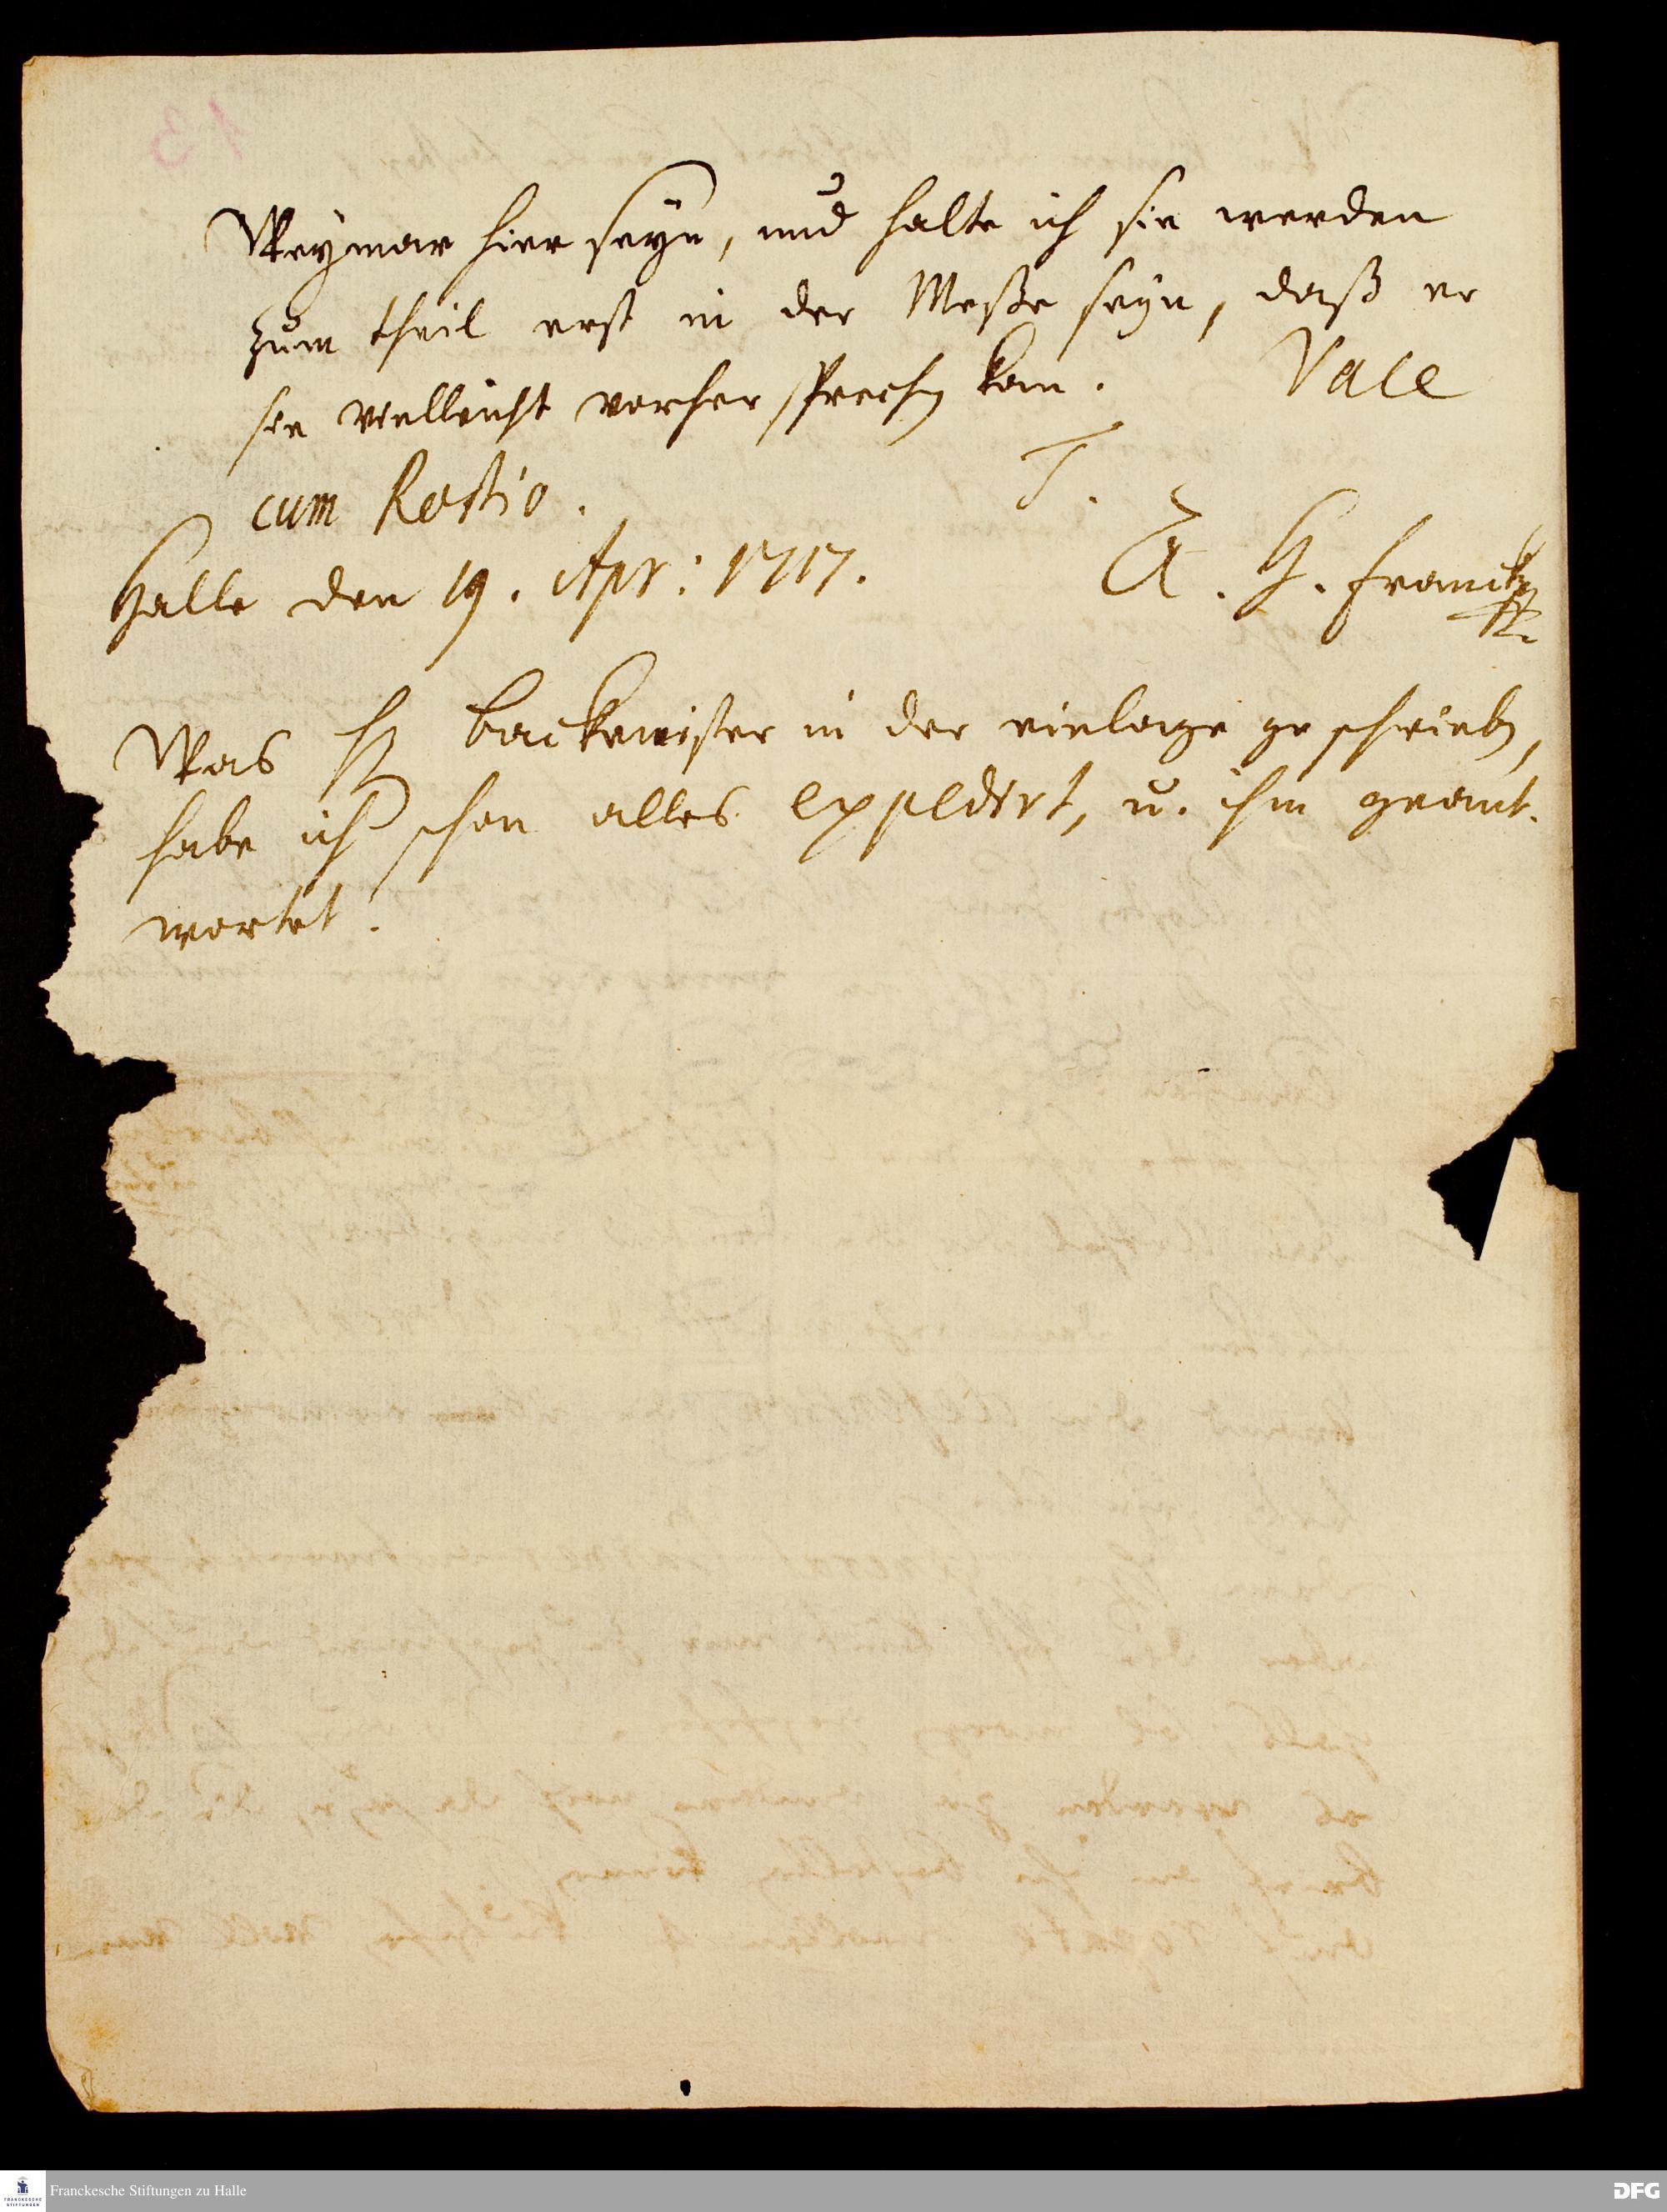 Weymar hier seyn, und halte ich sie werden
zum theil erst in der Meße seyn, daß er
sie vielleicht vorher sprechen kan. Vale
cum Rostio. T.
Halle den 19. Apr: 1717. A. H. Francke
Was H. Backmeister in der einlage geschrieben,
habe ich schon alles expedirt, u. ihm geant-
wortet.
Franckesche Stiftungen zu Halle
FRANCKESCHE STIFTUNGEN
DFG